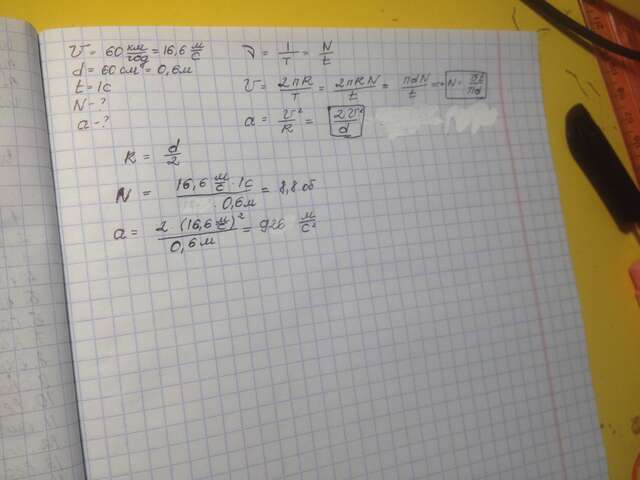 v = 60 км/год = 16,6 м/с
d = 60 см = 0,6 м
t = 1с
N - ?
a - ?
ν = 1/T = N/t
v = 2πR/T = 2πRN/t = πdN/t => N = vt/πd
a = v²/R = 2v²/d
R = d/2
N = 16,6 м/с · 1с / · 0,6м = 8,8 об
a = 2 · (16,6 м/с)² / 0,6 м = 926 м/с²